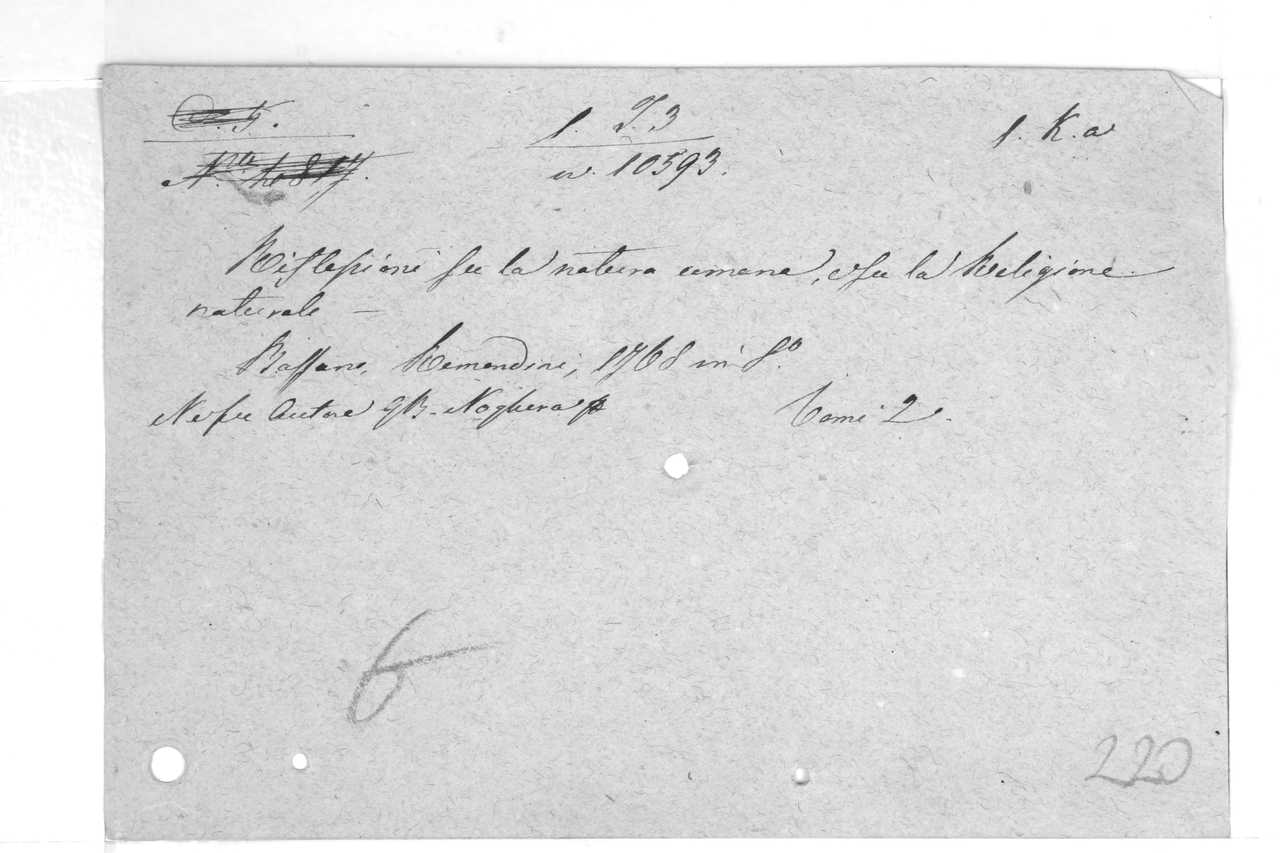 1. I. 3
1. K. a
n. 10593.
Riflessioni su la natura umana, e su la Religione
naturale —
Bassano, Remondini, 1768 in 8.o
Ne fu Autore GB. Noghera
Tomi 2.
6
220